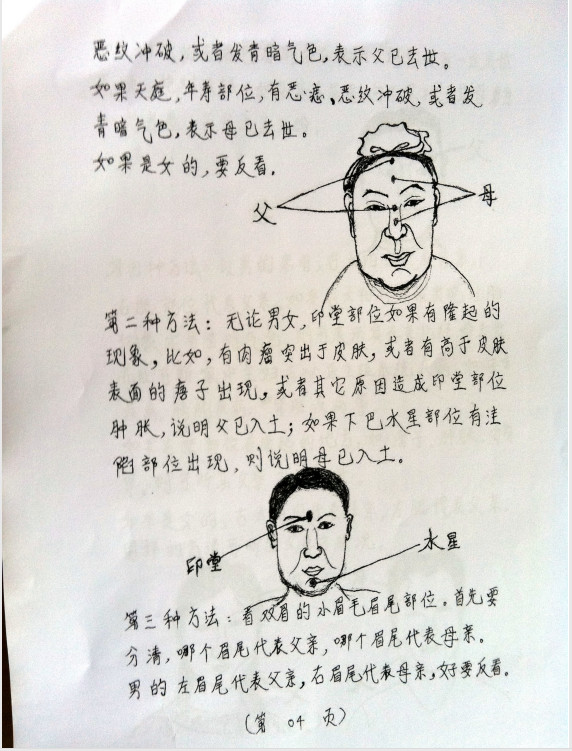 恶纹冲破，或者发青暗气色，表示父已去世。
如果天庭，年寿部位，有恶痣、恶纹冲破，或者发
青暗气色，表示母已去世。
如果是女的，要反看。
父
母
第二种方法：无论男女，印堂部位如果有隆起的
现象，比如，有肉瘤突出于皮肤，或者有高于皮肤
表面的唐子出现，或者其它原因造成印堂部位
肿胀，说明父已入土；如果下巴水星部位有洼
陷部位出现，则说明母已入土。
印堂
水星
第三种方法：看双眉的水眉毛眉尾部位。首先要
分清，哪个眉尾代表父亲，哪个眉尾代表母亲。
男的左眉尾代表父亲，右眉尾代表母亲，好要反看。
（第 04 页）